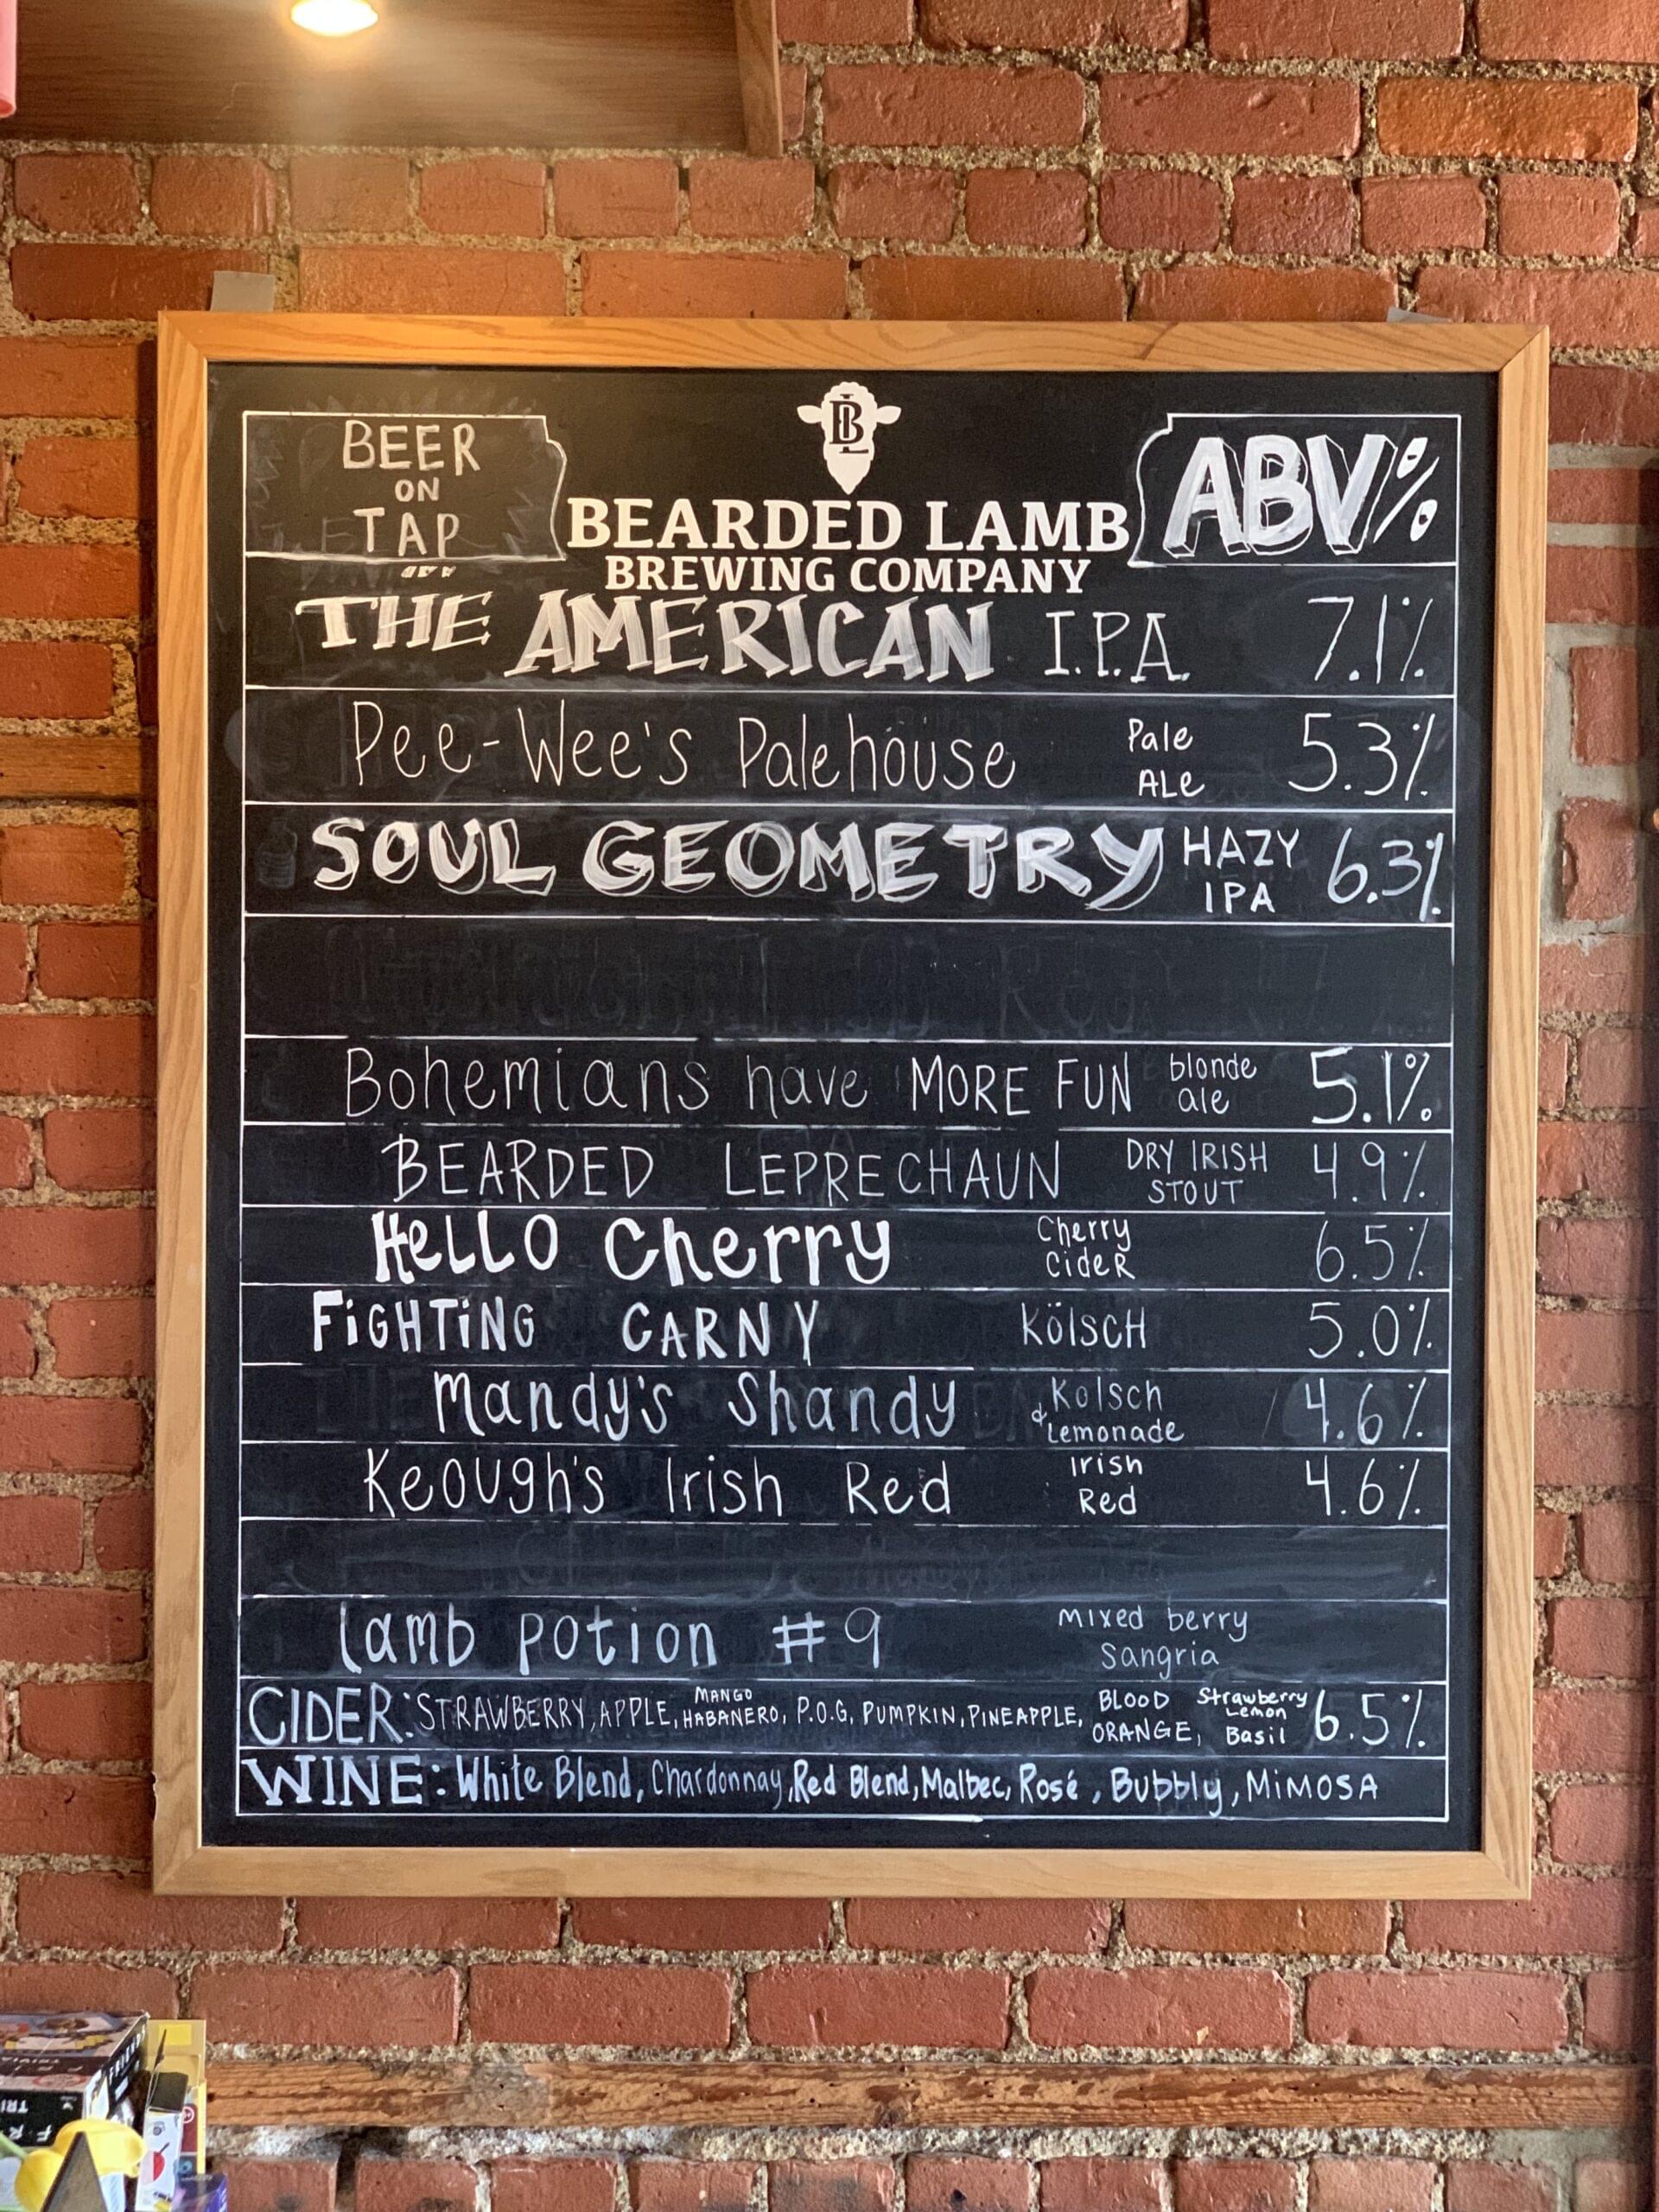 BEER
ON
TAP
BL
BEARDED LAMB
BREWING COMPANY
ABV%
THE AMERICAN I.P.A. 7.1%
Pee-Wee's Palehouse Pale Ale 5.3%
SOUL GEOMETRY HAZY IPA 6.3%
Bohemians have MORE FUN blonde ale 5.1%
BEARDED LEPRECHAUN DRY IRISH STOUT 4.9%
HeLLO Cherry Cherry CideR 6.5%
FiGHTiNG CARNY KölscH 5.0%
Mandy's Shandy Kolsch & Lemonade 4.6%
Keough's Irish Red Irish Red 4.6%
lamb potion #9 Mixed berry Sangria
CIDER: STRAWBERRY, APPLE, MANGO HABANERO, P.O.G, PUMPKIN, PINEAPPLE, BLOOD ORANGE, Strawberry Lemon Basil 6.5%
WINE: White Blend, Chardonnay, Red Blend, Malbec, Rosé, Bubbly, MiMOSA